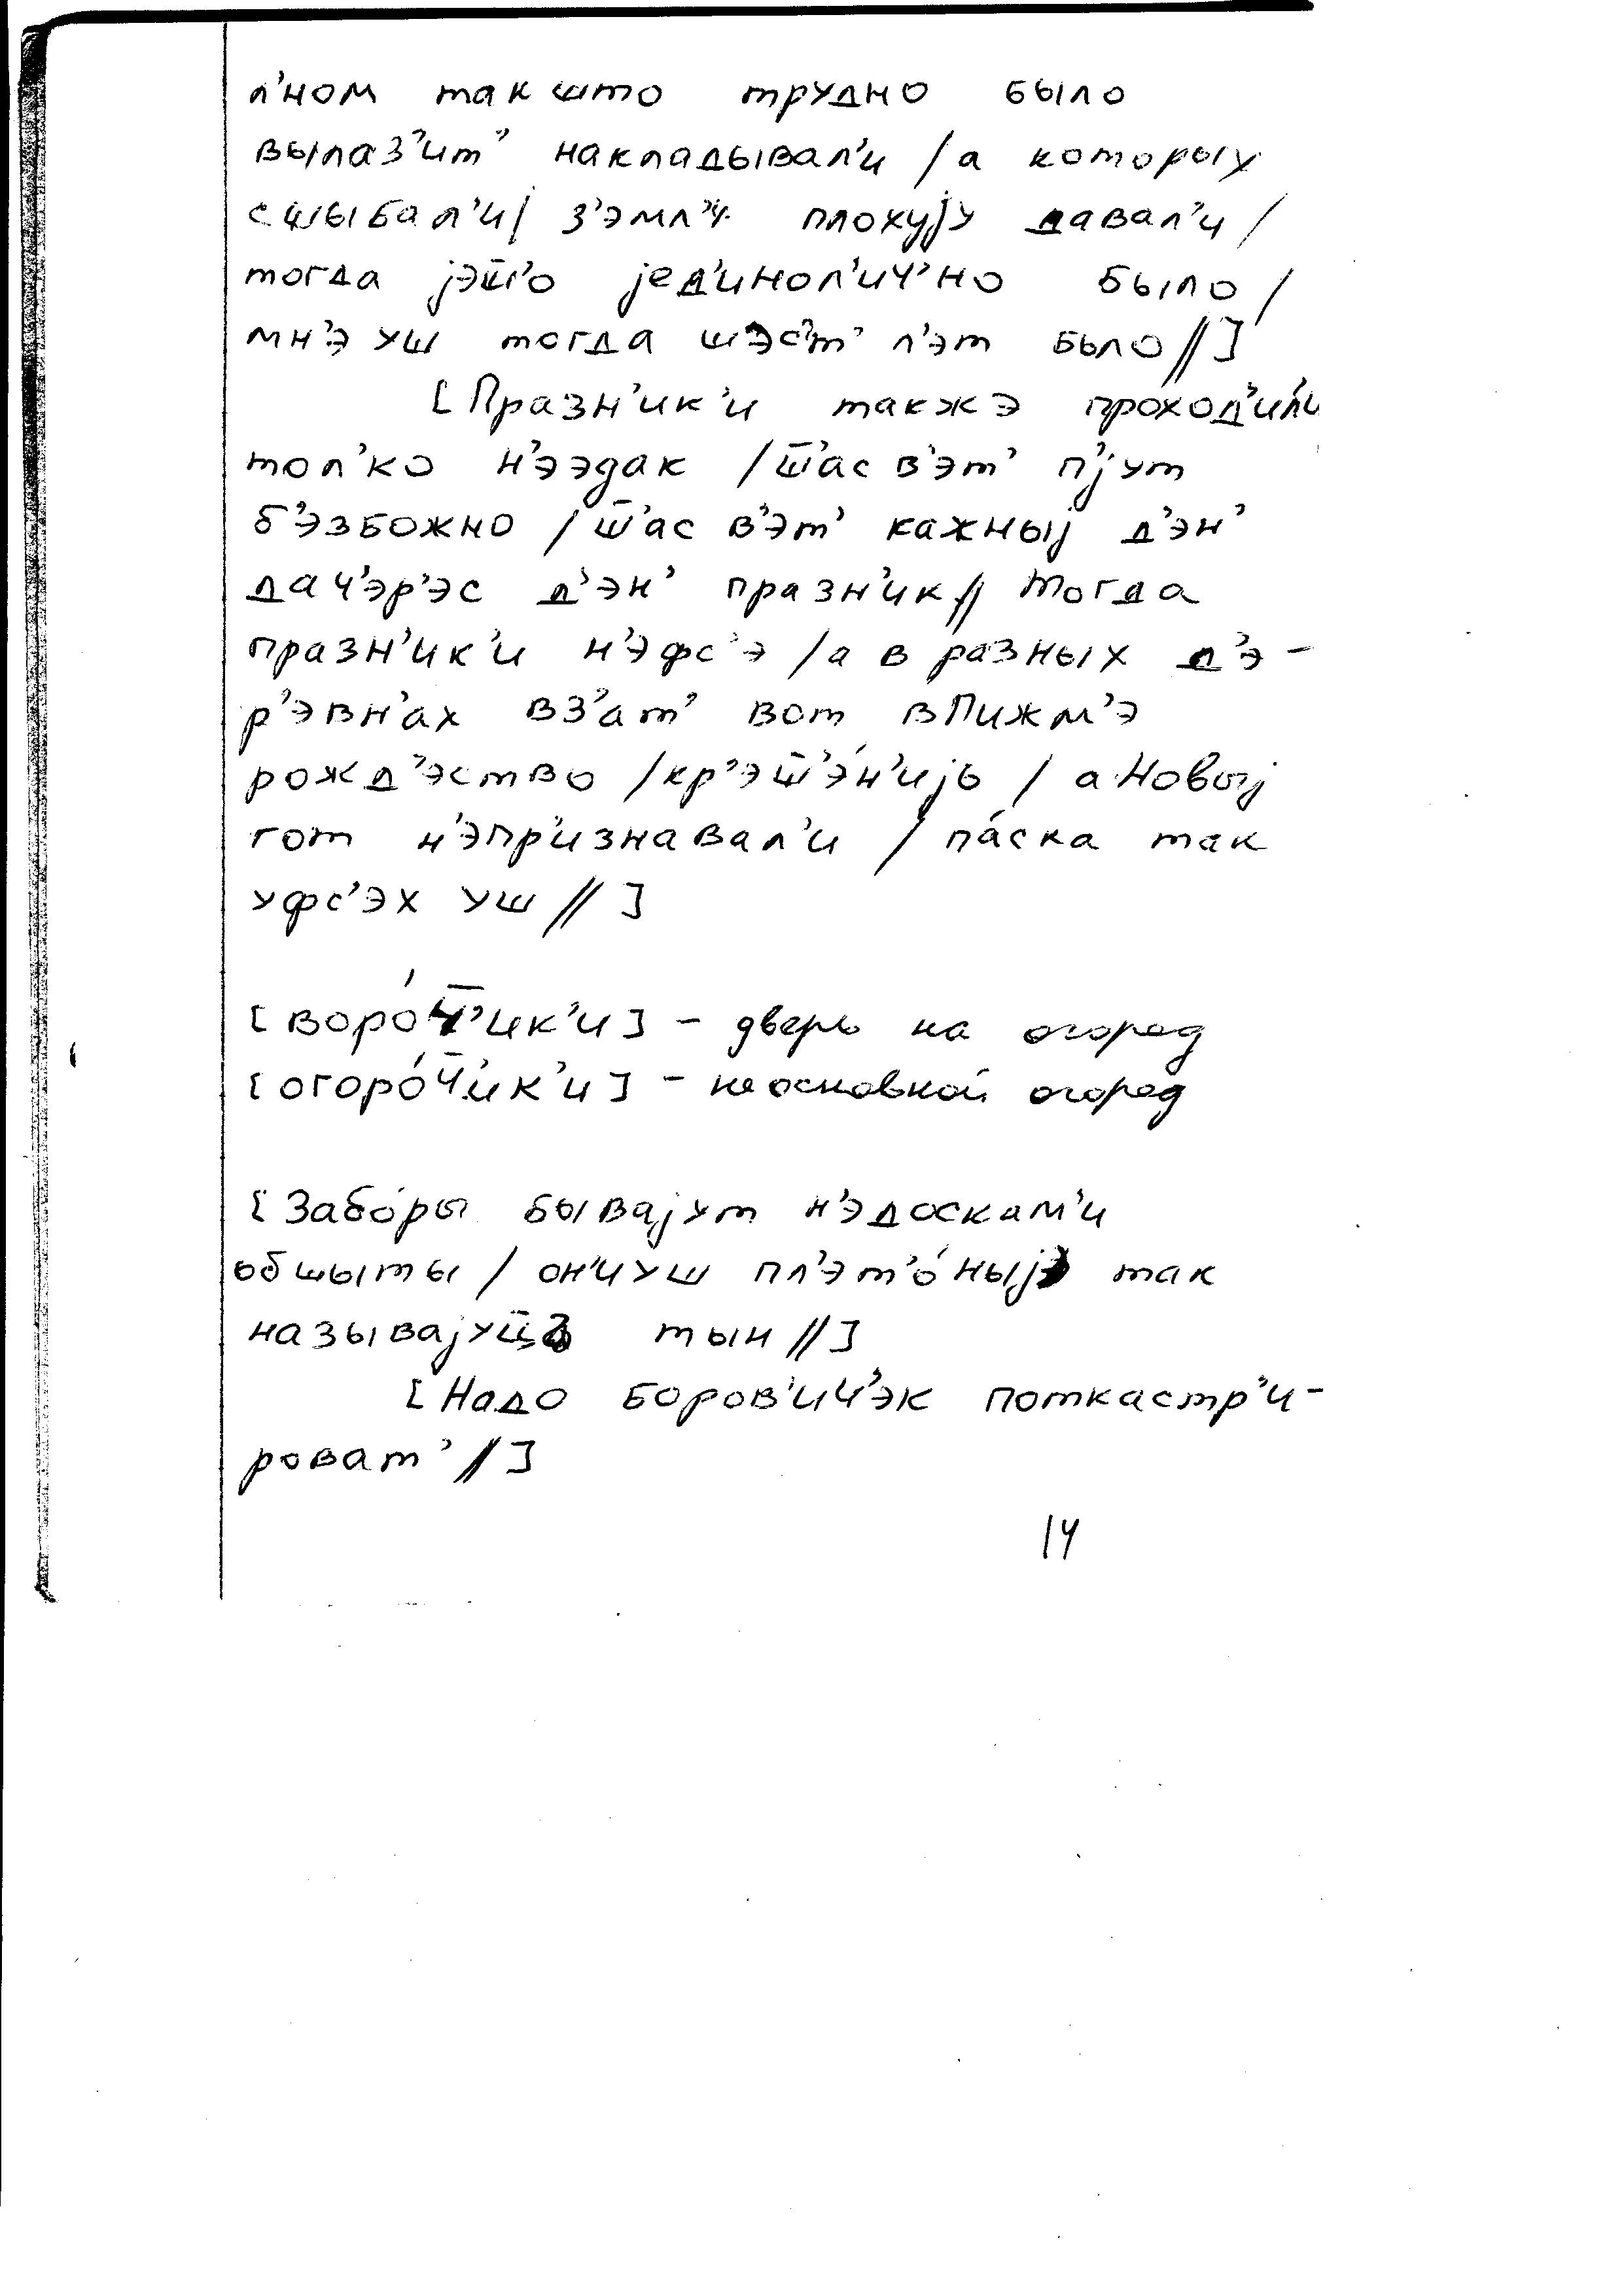 л'ном такшто трудно было
вылаз'ит' накладывал'и / а которых
сшыбал'и / з'эмл'у плохуjу давал'и /
тогда jэш̄'о jед'инол'ич'но было /
мн'э уш тогда шэс'т' л'эт было // ]
[ Празн'ик'и такжэ проход'ил'и
тол'ко н'ээдак / ш̄'ас в'эт' п'jут
б'эзбожно / ш̄'ас в'эт' кажныj д'эн'
дач'эр'эс д'эн' празн'ик // Тогда
празн'ик'и н'эфс'э / а в разных д'э -
р'эвн'ах вз'ат' вот вПижм'э
рожд'эство / кр'эш̄'э́н'иjь / а Новыj
гот н'эпр'изнавал'и / па́ска так
уфс'эх уш // ]
[ воро́ч̄'ик'и ] - дверь на огород
[ огоро́ч̄'ик'и ] - неосновной огород
[ Забо́ры бываjут н'эдоскам'и
обшыты / он'иуш пл'эт'о́ныjэ так
называjуц̄ъ тын // ]
[ Надо боров'ич'эк поткастр'и -
роват' // ]
14